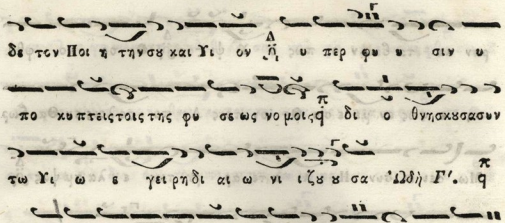 δε τον Ποι η την συ και Υι ον υ περ φυ υ σιν υ
πο κυπτεις τοις της φυ σε ως νο μοις δι ο θνησκουσα συν
τω Υι ω ε γει ρη δι αι ω νι ι ζου ου σα Ὠδὴ Γ΄.